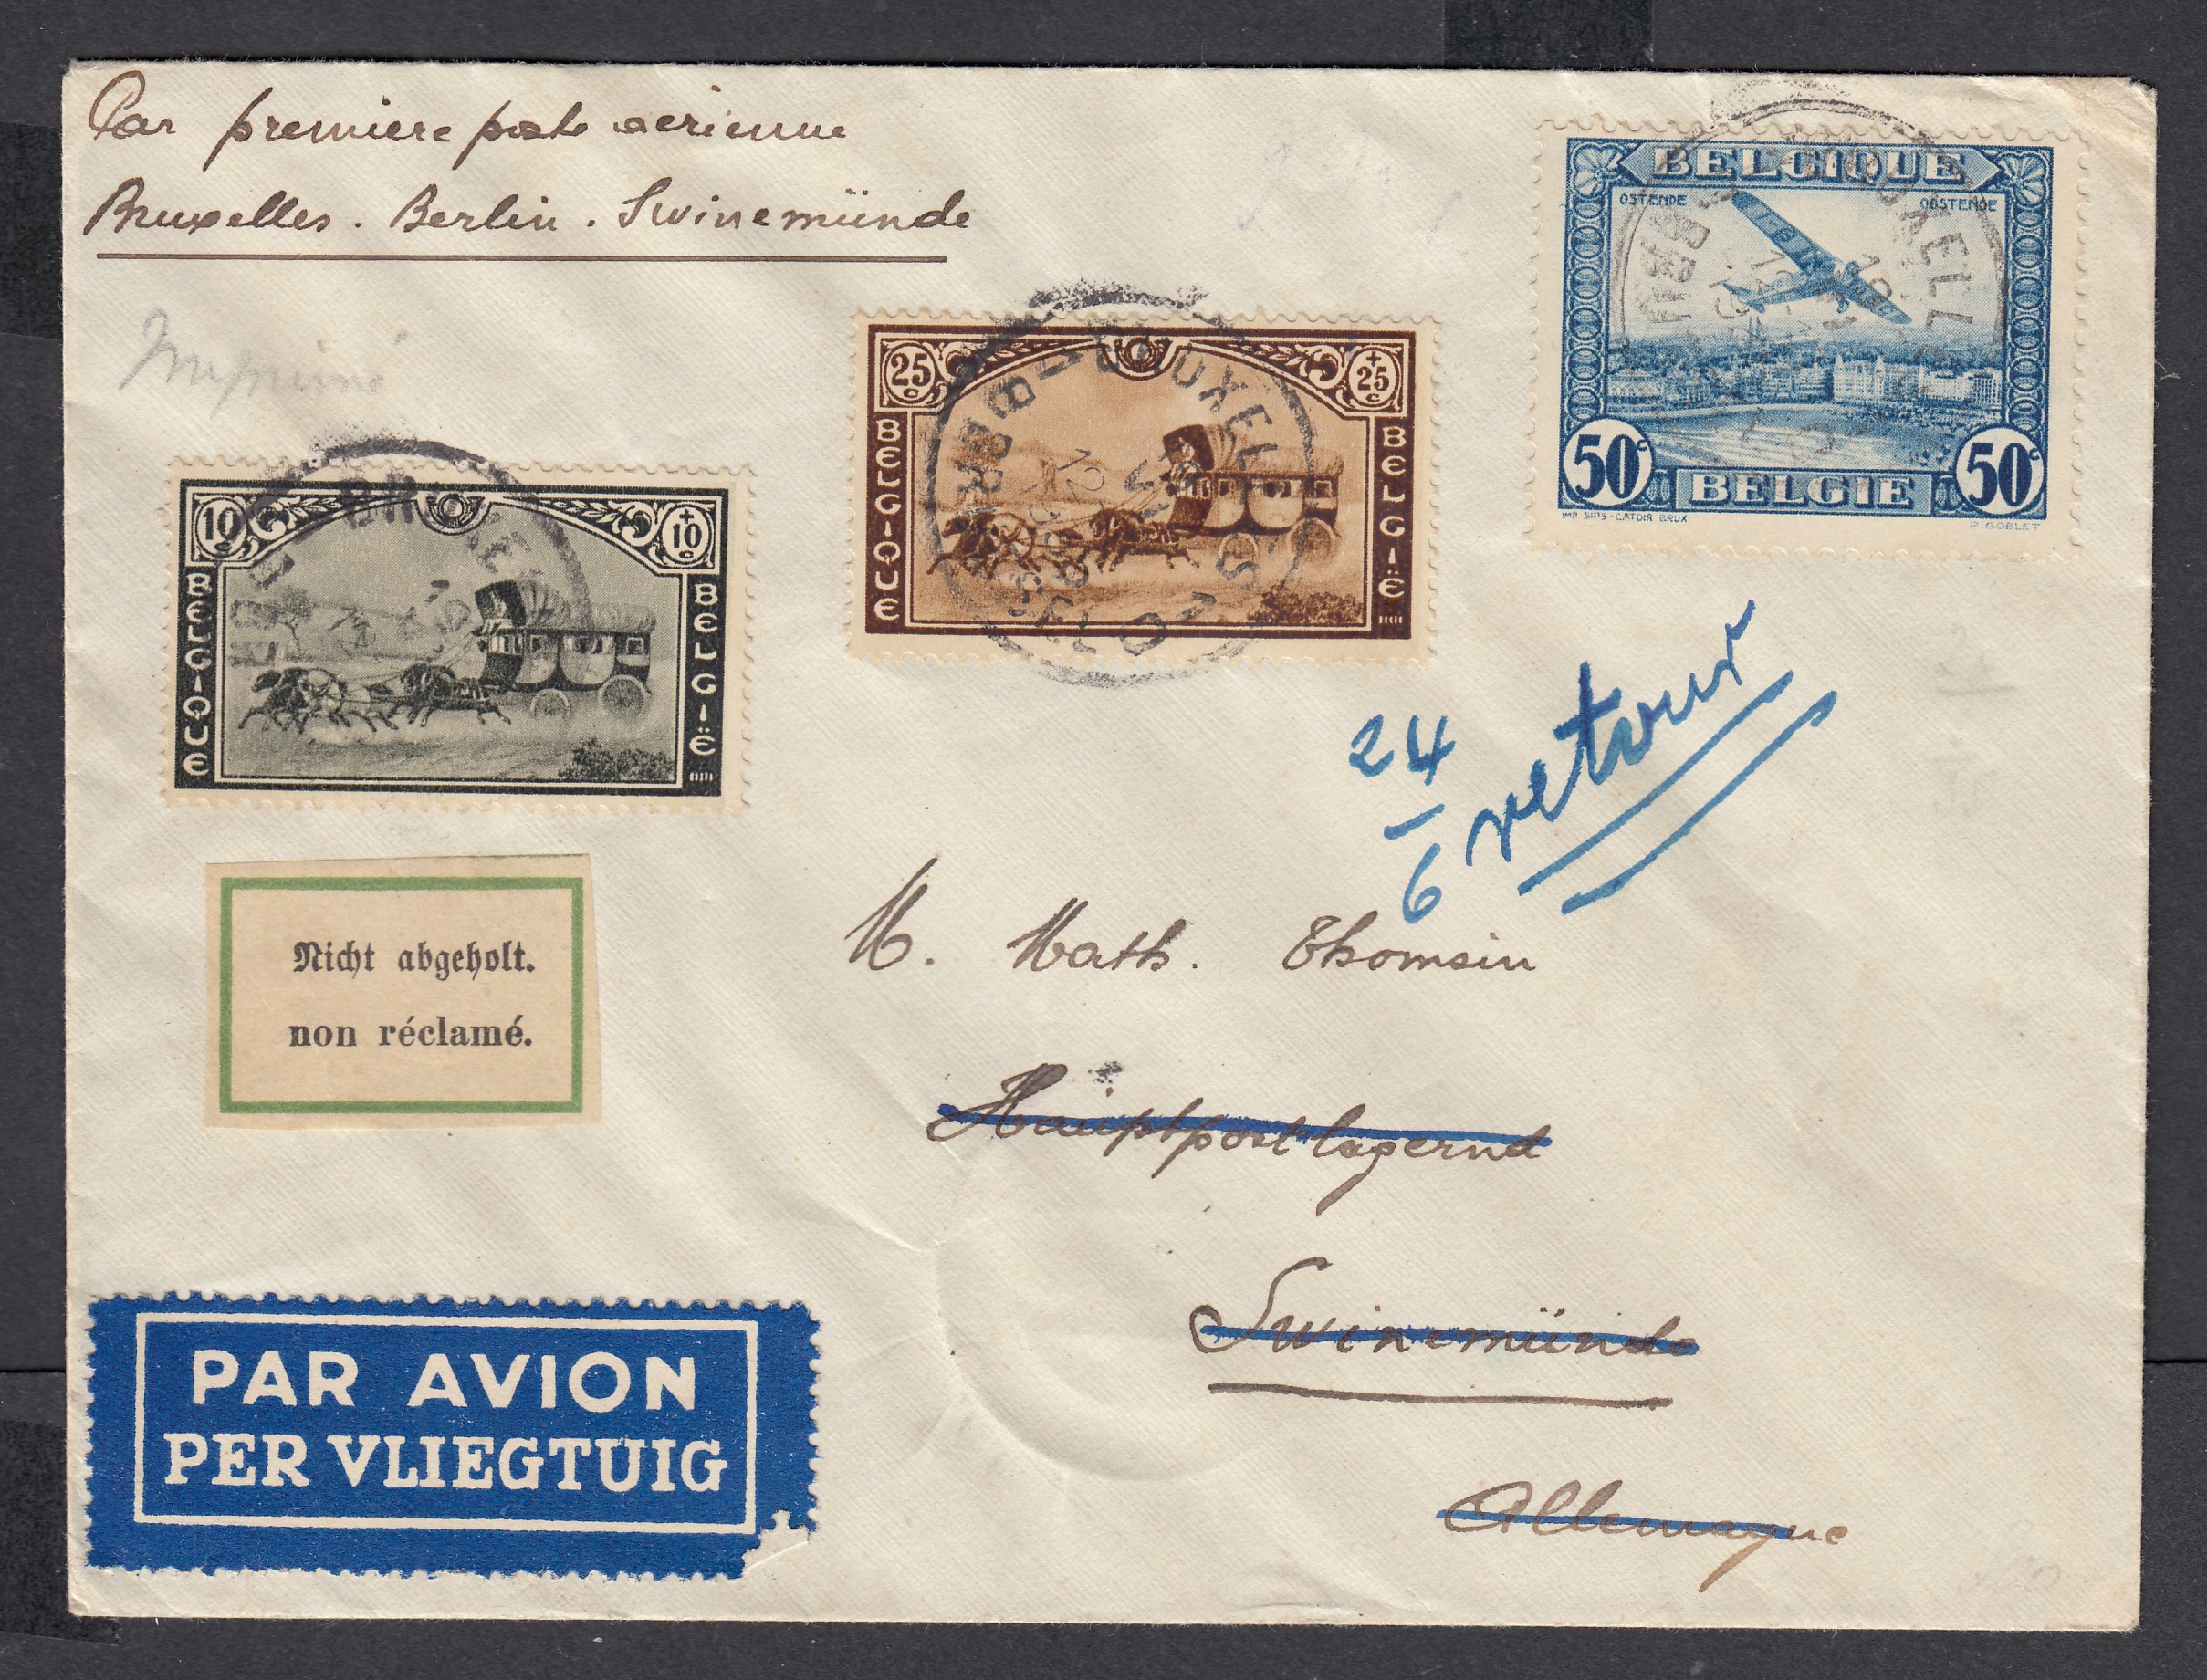 Par premiere poste aérienne
Bruxelles . Berlin . Swinemünde
Imprimé
BELGIQUE
OSTENDE OOSTENDE
50c 50c
BELGIE
IMP SIPS-CATOIR BRUX P. GOBLET
25c +25c
BELGIQUE BELGIË
BRUXELLES
10c +10c
BELGIQUE BELGIË
24
6
retour
Nicht abgeholt.
non réclamé.
M. Math. Thomsin
Hauptpostlagernd
Swinemünde
Allemagne
PAR AVION
PER VLIEGTUIG